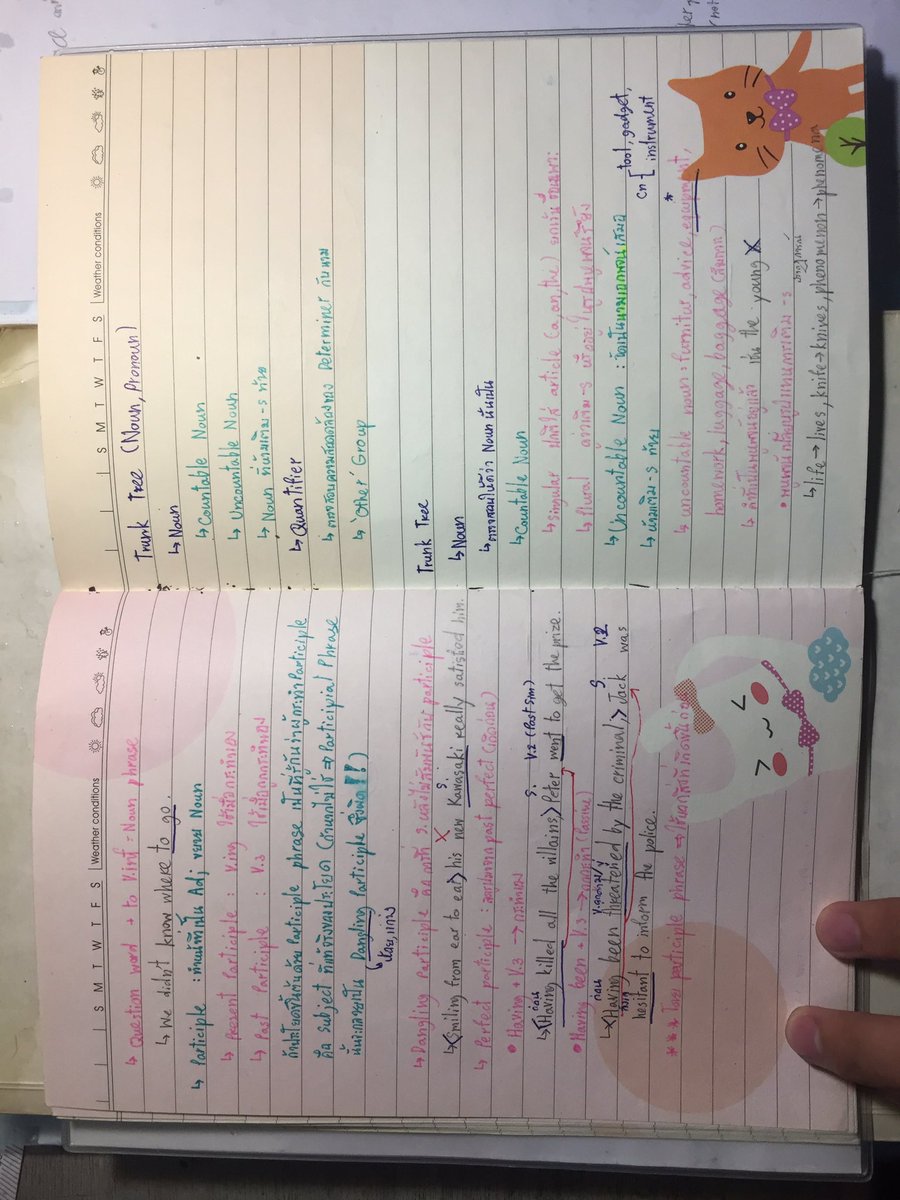 S M T W T F S Weather conditions
↳ Question word + to V.inf = Noun phrase
↳ We didn't know where to go.
↳ Participle : ทำหน้าที่เป็น Adj ขยาย Noun
↳ Present Participle : V.ing ใช้เมื่อกระทำเอง
↳ Past Participle : V.3 ใช้เมื่อถูกกระทำ
ถ้าประโยคขึ้นต้นด้วย Participle phrase เป็นที่รู้กันว่าผู้กระทำ Participle
คือ Subject ที่แท้จริงของประโยค (ถ้าหากไม่ใช่ ⇒ Participial Phrase
นั้นจะกลายเป็น Dangling Participle ซึ่งผิด!!)
↳ Dangling Participle คือ การที่ S. หลังไม่สัมพันธ์กับ participle
S.
↳ <Smiling from ear to ear> his new Kawasaki really satisfied him.
↳ Perfect participle : ลดรูปมาจาก past perfect (เกิดก่อน)
• Having + V.3 → กระทำเอง
ก่อน S. V.2 (Past Sim)
↳ <Having killed all the villains,> Peter went to get the prize.
• Having been + V.3 → ถูกกระทำ (Passive)
ก่อน S. V.2
↳ <Having been threatened by the criminal,> Jack was
hesitant to inform the police.
S M T W T F S Weather conditions
Trunk Tree (Noun, Pronoun)
↳ Noun
↳ Countable Noun
↳ Uncountable Noun
↳ Noun ที่ห้ามเติม -s ท้าย
↳ Quantifier
↳ ตรวจสอบความสอดคล้องของ Determiner กับนาม
↳ 'Other' Group
Trunk Tree
↳ Noun
↳ ตรวจสอบให้ดีว่า Noun นั้นเป็น
↳ Countable Noun
↳ singular ปกติใส่ article (a, an, the) ยกเว้น ชื่อเฉพาะ
↳ plural
↳ Uncountable Noun : นับเป็นนามเอกพจน์เสมอ
↳ ห้ามเติม -s ท้าย
cn [tool, gadget,
instrument
↳ uncountable noun : furnitur, advice, equipment,
homework, luggage, baggage (สัมภาระ)
เช่น the young
↳ life → lives, knife → knives, phenomenon → phenomena